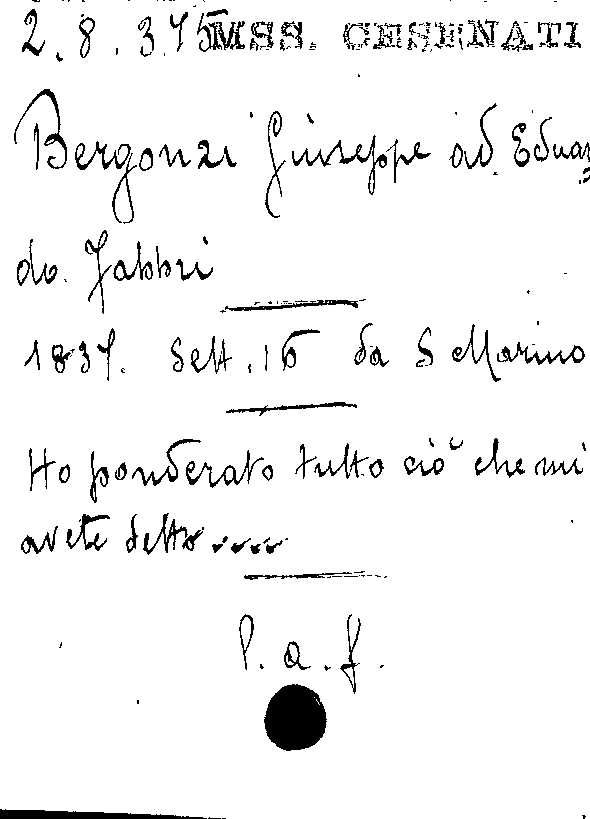 2.8.375 MSS. CESENATI
Bergonzi Giuseppe ad Eduar=
do Fabbri
1837. Sett. 16 da S Marino
Ho ponderato tutto ciò che mi
avete detto.....
l. a. f.